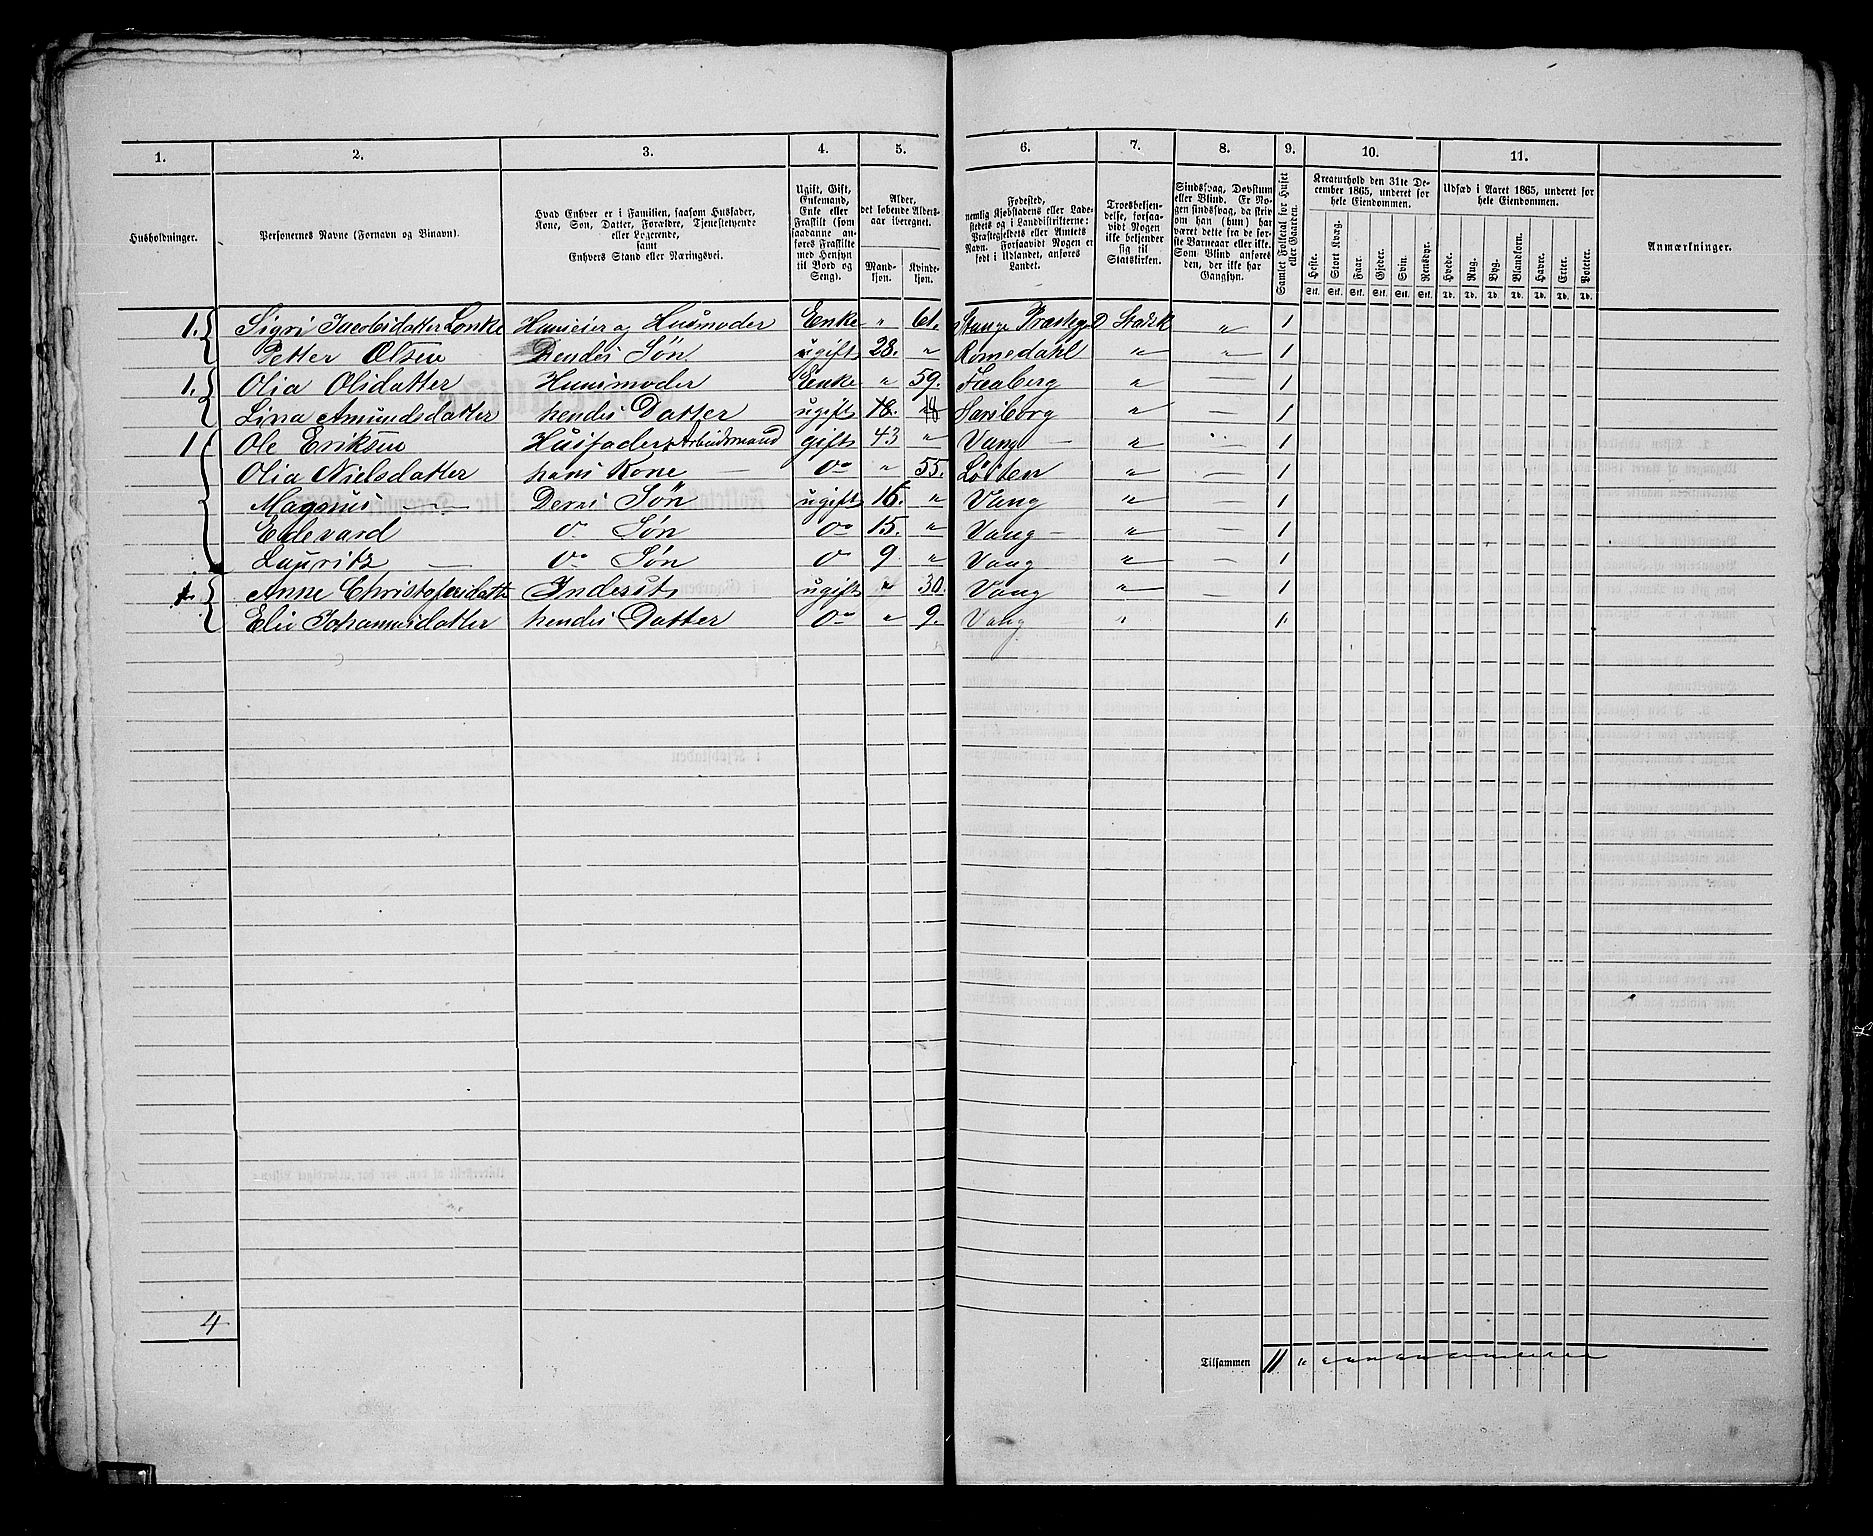 1. 2. 3. 4. 5. 6. 7. 8. 9. 10. 11.
Husholdninger.
Personernes Navne (Fornavn og Binavn).
Hvad Enhver er i Familien, saasom Husfader,
Kone, Søn, Datter, Forældre, Tjenestetyende
eller Logerende,
samt
Enhvers Stand eller Næringsvei.
Ugift, Gift,
Enkemand,
Enke eller
Fraskilt (som
saadanne an-
føres Fraskilte
med Hensyn
til Bord og
Seng).
Alder,
det løbende Alders-
aar iberegnet.
Mand-
kjøn.
Kvinde-
kjøn.
Fødested,
nemlig Kjøbstadens eller Lade-
stedets og i Landdistrikterne:
Præstegjeldets eller Amtets
Navn. Forsaavidt Nogen er
født i Udlandet, anføres
Landet.
Troesbekjen-
delse, forsaa-
vidt Nogen
ikke bekjender
sig til
Statskirken.
Sindssvag, Døvstum
eller Blind. Er No-
gen sindssvag, da skriv
om han (hun) har
været dette fra de før-
ste Barneaar eller ikke.
Som Blind anføres
den, der ikke har
Gangsyn.
Samlet Folketal for Huset
eller Gaarden.
Kreaturhold den 31te De-
cember 1865, underet for
hele Eiendommen.
Heste. Stort Kvæg. Faar. Gjeder. Svin. Rensdyr.
Stk. Stk. Stk. Stk. Stk. Stk.
Udsæd i Aaret 1865, underet for
hele Eiendommen.
Hvede. Rug. Byg. Blandkorn. Havre. Erter. Poteter.
Td. Td. Td. Td. Td. Td. Td.
Anmærkninger.
1. Sigri Jacobsdatter Huseier og Husmoder Enke " 61. Stange Præstegd Statsk " 1
Petter Olsen Hendes Søn ugift 28. " Romedahl " " 1
1. Olia Olsdatter Husmoder Enke " 59. Faaberg " — 1
Lina Amundsdatter hendes Datter ugift 18. " — 1
1 Ole Eriksen Husfader Arbeidsmand gift 43 " Vang — " 1
Olia Nielsdatter hans Kone — Do " 55. Løiten " — 1
Magnus — Deres Søn ugift 16. " Vang " — 1
Edevard Do Søn Do 15. " Vang — " — 1
Lauritz — Do Søn Do 9. " Vang " — 1
1. Anne Christofersdatter Inderst ugift " 30. Vang " — 1
Elie Johannesdatter hendes Datter Do " 9. Vang " 1
4
Tilsammen 11 "